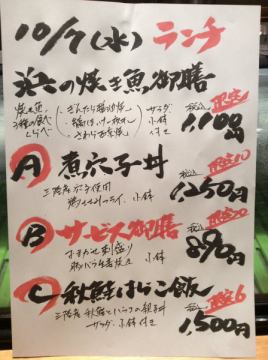 10/7(水) ランチ
浜の焼き魚御膳
焼き魚 ・ぎんだら醤油焼 サラダ 税込 限定
3種の食べ ・縞ほっけ一夜干し 小鉢 1,100円
くらべ ・さわら西京焼 付き
A 煮穴子丼 税込 限定10
三陸産穴子使用 小鉢 1,250円
B サービス御膳 税込 限定20
おまかせ刺盛り 890円
豚バラ 小鉢
C 秋鮭はらこ飯 税込 限定6
三陸産 秋鮭といくらの親子丼 1,500円
サラダ、小鉢付き